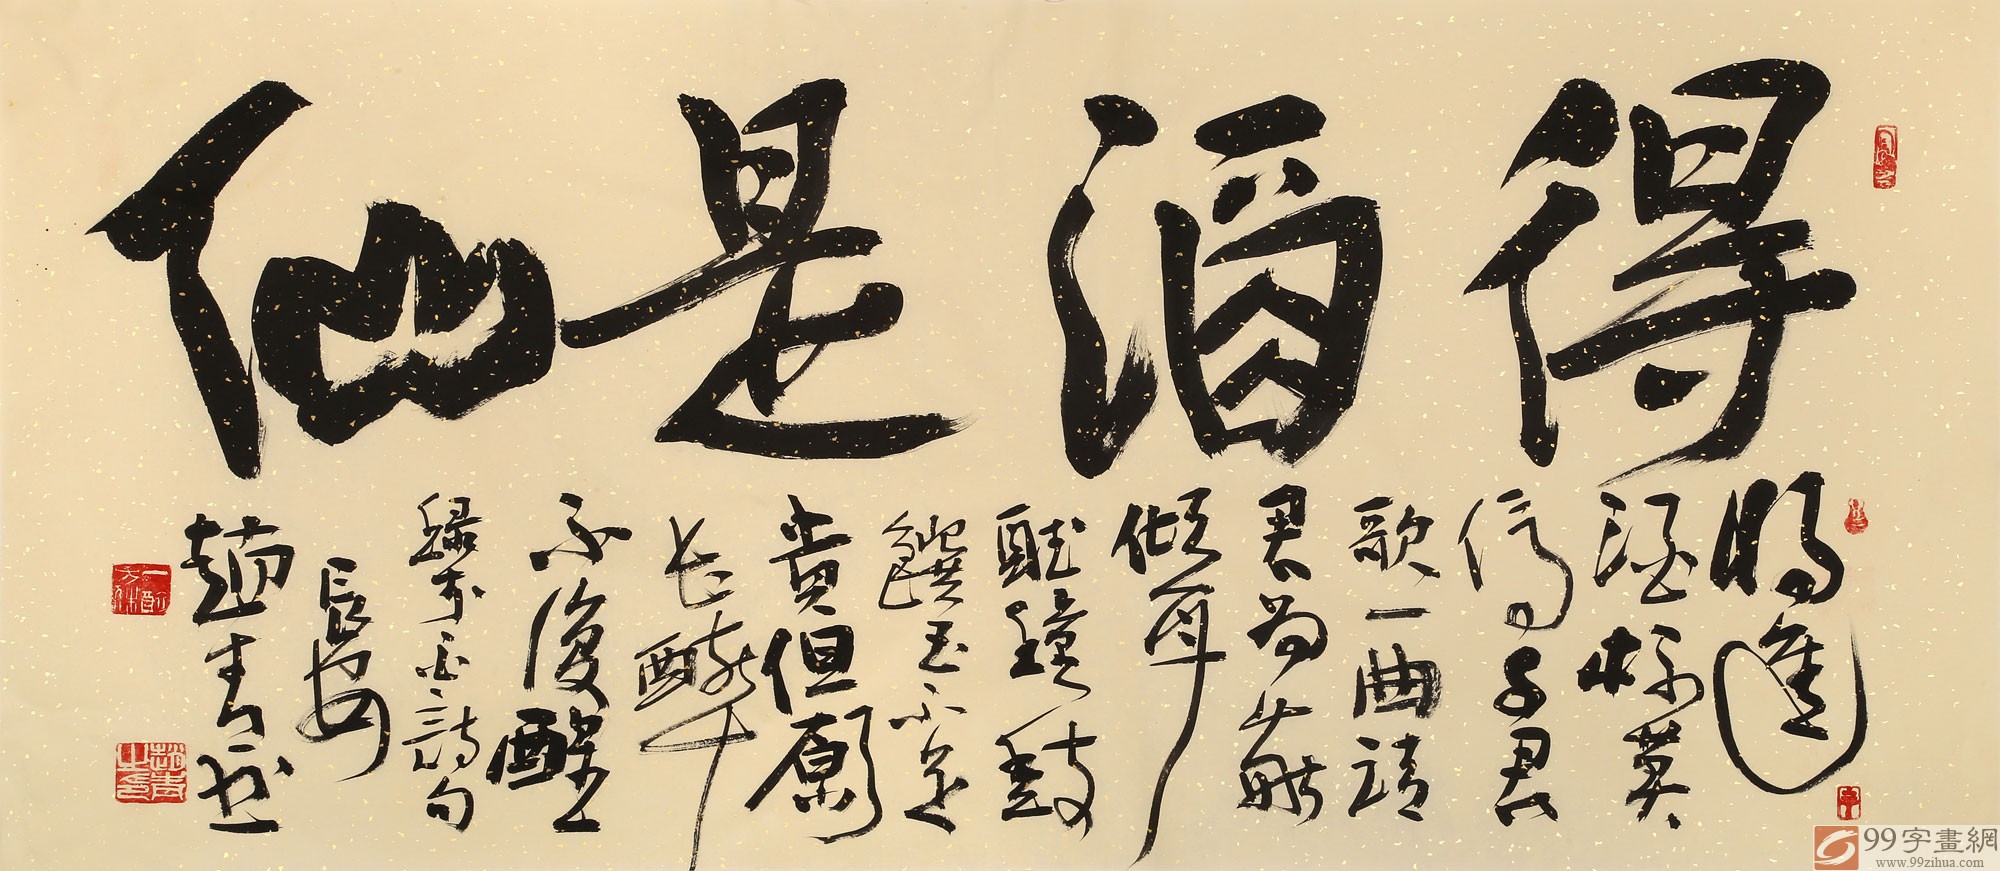 得酒是仙
將進
酒杯莫
停與君
歌一曲請
君為我
傾耳
聽鐘鼓
饌玉不足
貴但願
長醉
不復醒
錄李白詩句
長安
趙青書
趙青之印
99字畫網
www.99zihua.com